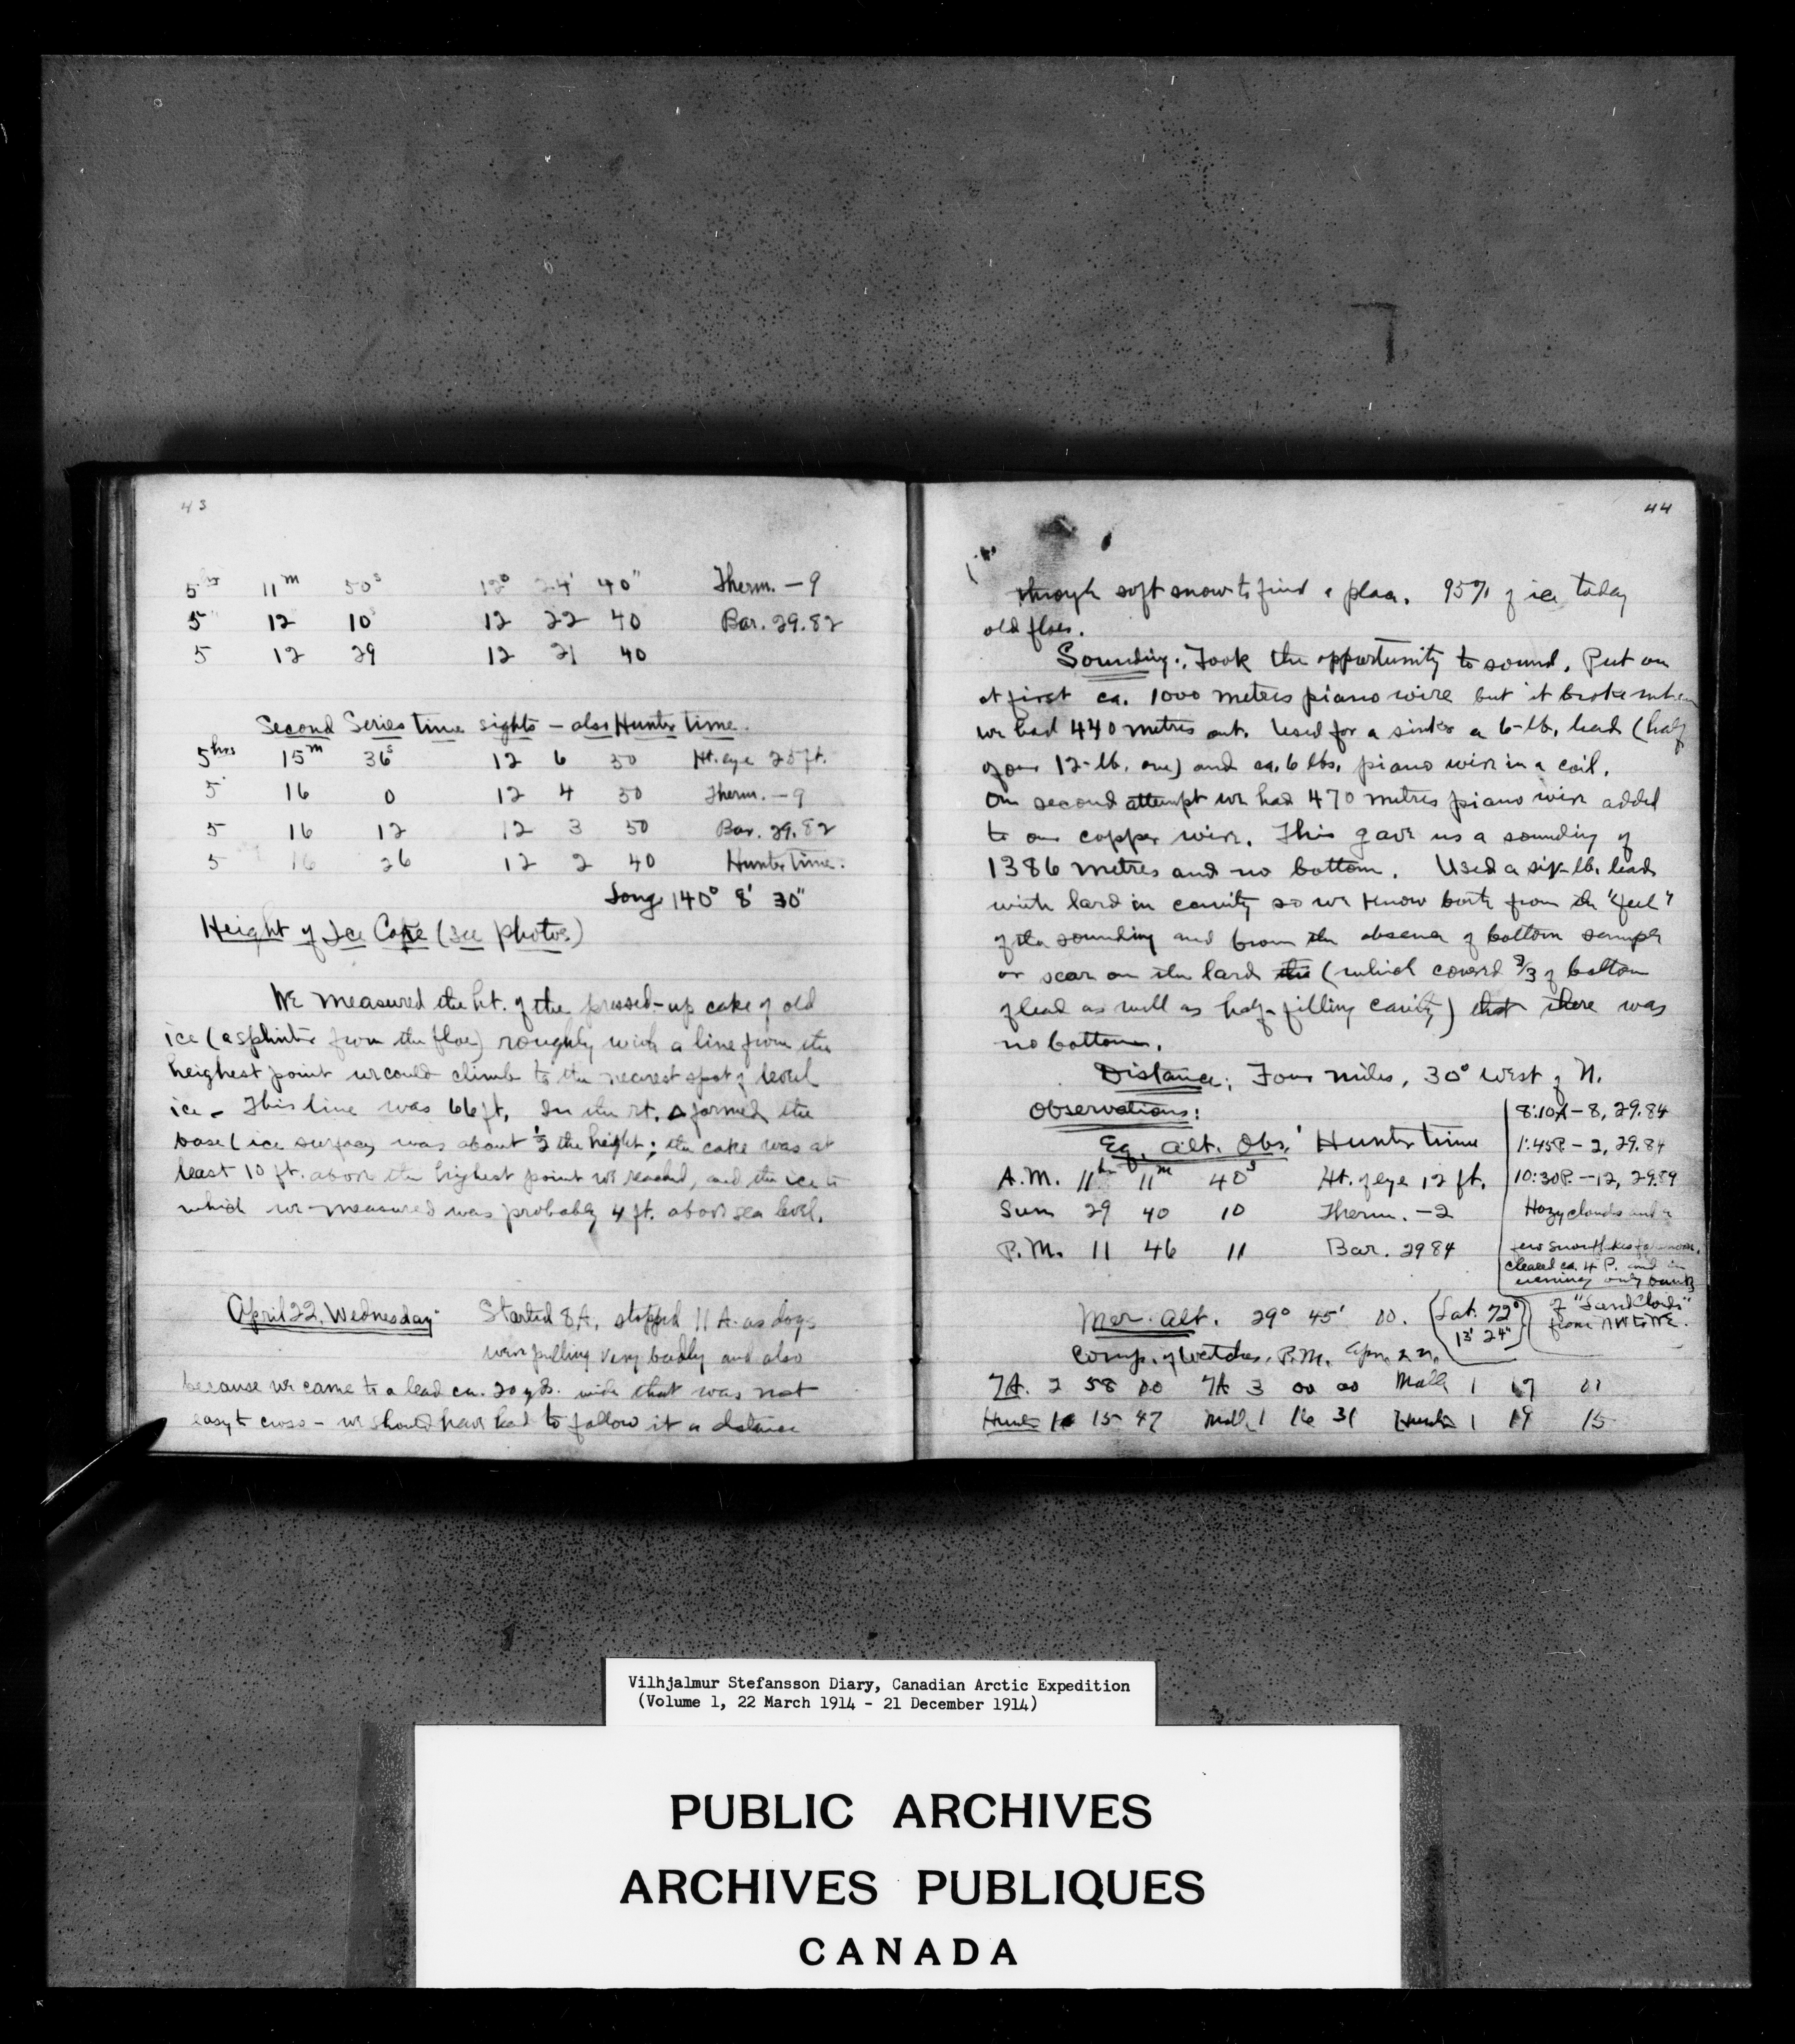 43
5hrs 11m 50s 12° 24' 40" Therm. -9
5 12 10 12 22 40 Bar. 29.82
5 12 29 12 21 40
Second Series time sights - also Hunter time.
5hrs 15m 36s 12 6 50 Ht. eye 25 ft.
5 16 0 12 4 50 Therm. -9
5 16 12 12 3 50 Bar. 29.82
5 16 26 12 2 40 Hunter time.
Long 140° 8' 30"
Height of Ice Cake (see photos)
We measured the ht. of the pressed-up cake of old
ice (a splinter from the floe) roughly with a line from the
heighest point we could climb to the nearest spot of level
ice - This line was 66 ft. In the rt. △ formed the
base (ice surface) was about ½ the height; the cake was at
least 10 ft. above the highest point we reached, and the ice to
which we measured was probably 4 ft. above sea level.
April 22, Wednesday Started 8 A, stopped 11 A. as dogs
were pulling very badly and also
because we came to a lead ca. 20 yds. wide that was not
easy to cross - we should have had to follow it a distance
44
through soft snow to find a place. 95% of ice today
old floes.
Sounding: Took the opportunity to sound. Put on
at first ca. 1000 meters piano wire but it broke when
we had 440 metres out. Used for a sinker a 6-lb. lead (half
of our 12-lb. one) and ca. 6 lbs. piano wire in a coil.
On second attempt we had 470 metres piano wire added
to our copper wire. This gave us a sounding of
1386 metres and no bottom. Used a six-lb. lead
with lard in cavity so we know both from the "feel"
of the sounding and from the absence of bottom sample
or scar on the lard the (which coverd 2/3 of bottom
of lead as well as half-filling cavity) that there was
no bottom.
Distance: Four miles, 30° West of N.
Observations:
Eq. Alt. Obs. Hunter time
A.M. 11hr 11m 40s Ht. of eye 12 ft.
Sun 29 40 10 Therm. -2
P.M. 11 46 11 Bar. 29 84
8:10A - 8, 29.84
1:45P. - 2, 29.84
10:30P. -12, 29.89
Hazy clouds and a
few snowflakes forenoon,
cleared ca. 4 P. and in
evening only bank
of "Land Clouds"
from NW to NE.
Mer. Alt. 29° 45' 00. (Lat. 72°
13' 24")
Comp. of Watches, P.M. Apr. 22.
7A. 2 58 00 7A 3 00 00 Mall 1 17 01
Hunter 1 15 47 Mall 1 16 31 Hunter 1 19 15
Vilhjalmur Stefansson Diary, Canadian Arctic Expedition
(Volume 1, 22 March 1914 - 21 December 1914)
PUBLIC ARCHIVES
ARCHIVES PUBLIQUES
CANADA